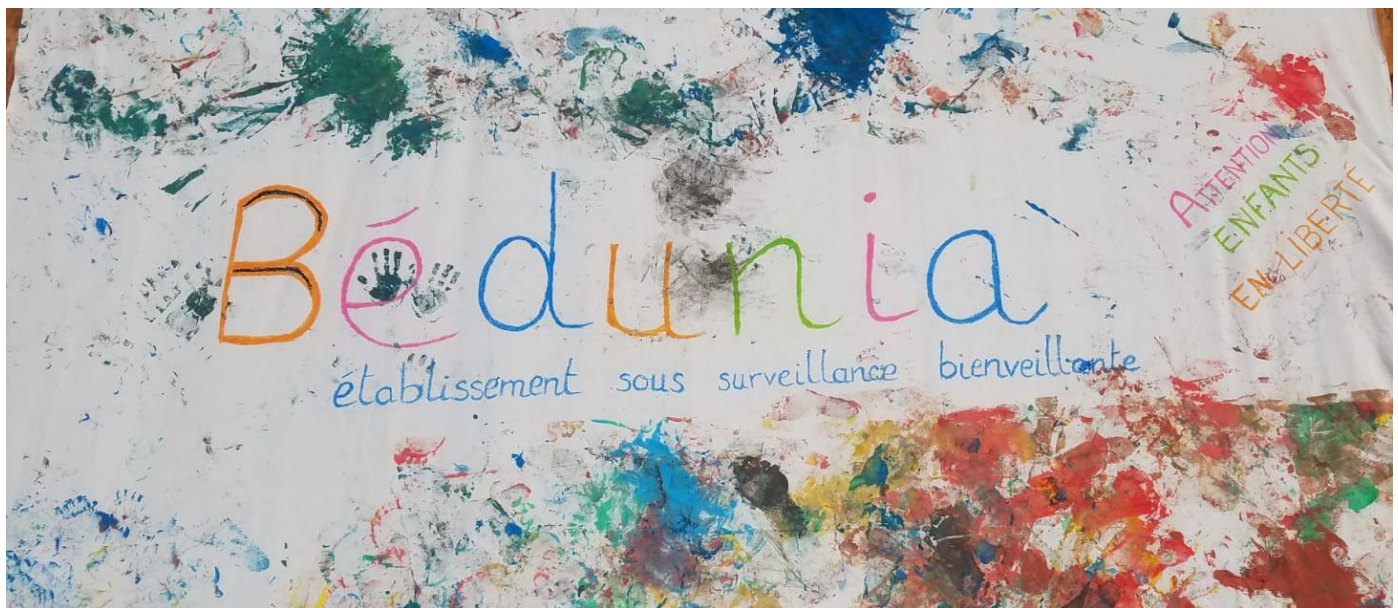 Bédunià
établissement sous surveillance bienveillante
ATTENTION
ENFANTS
EN LIBERTÉ